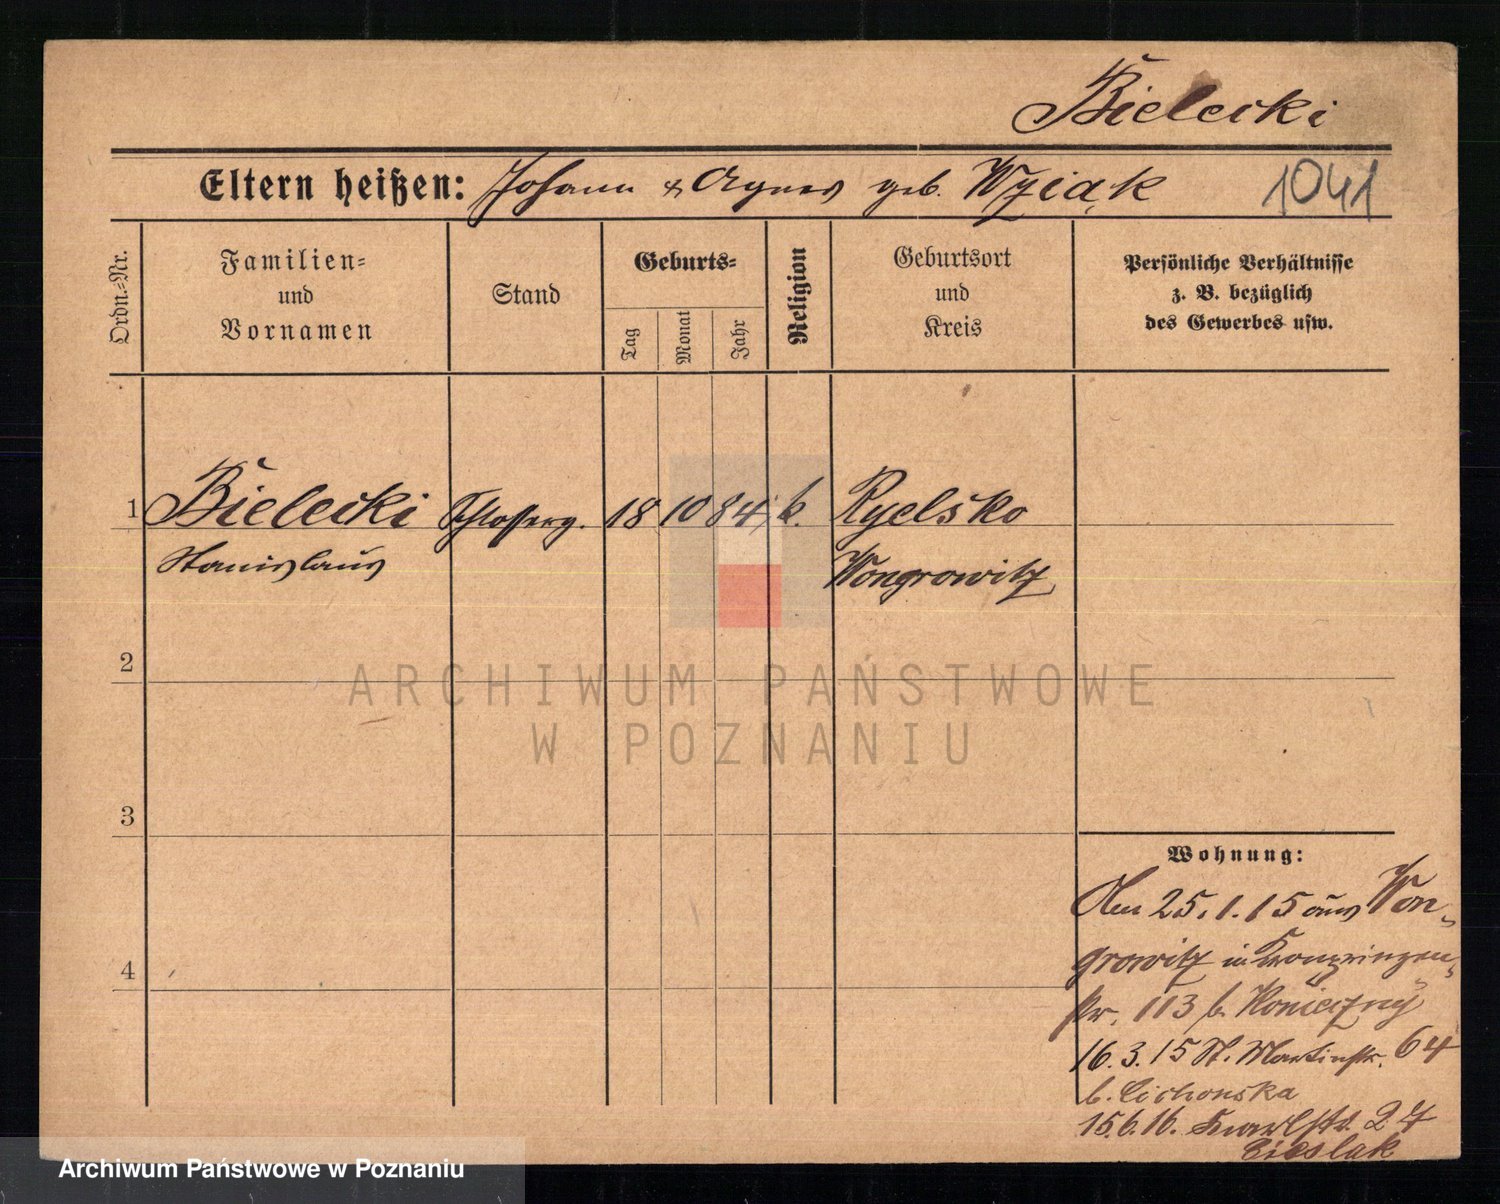 Bielecki
Eltern heißen: Johann & Agnes geb. Wziąk
1041
Ordn.-Nr.
Familien-
und
Vornamen
Stand
Geburts-
Tag
Monat
Jahr
Religion
Geburtsort
und
Kreis
Persönliche Verhältnisse
z. B. bezüglich
des Gewerbes usw.
1 Bielecki Schlosserg. 18 10 84 k. Ryelsko
Stanislaus Wongrowitz
2
3
4
Wohnung:
Am 25.1.15 aus Won-
growitz in Kronprinzen-
str. 113 b. Konieczny
16.3.15 St. Martinstr. 64
b. Cichonska
15.6.16. Karlstr. 27
Cieslak
ARCHIWUM PAŃSTWOWE
W POZNANIU
Archiwum Państwowe w Poznaniu